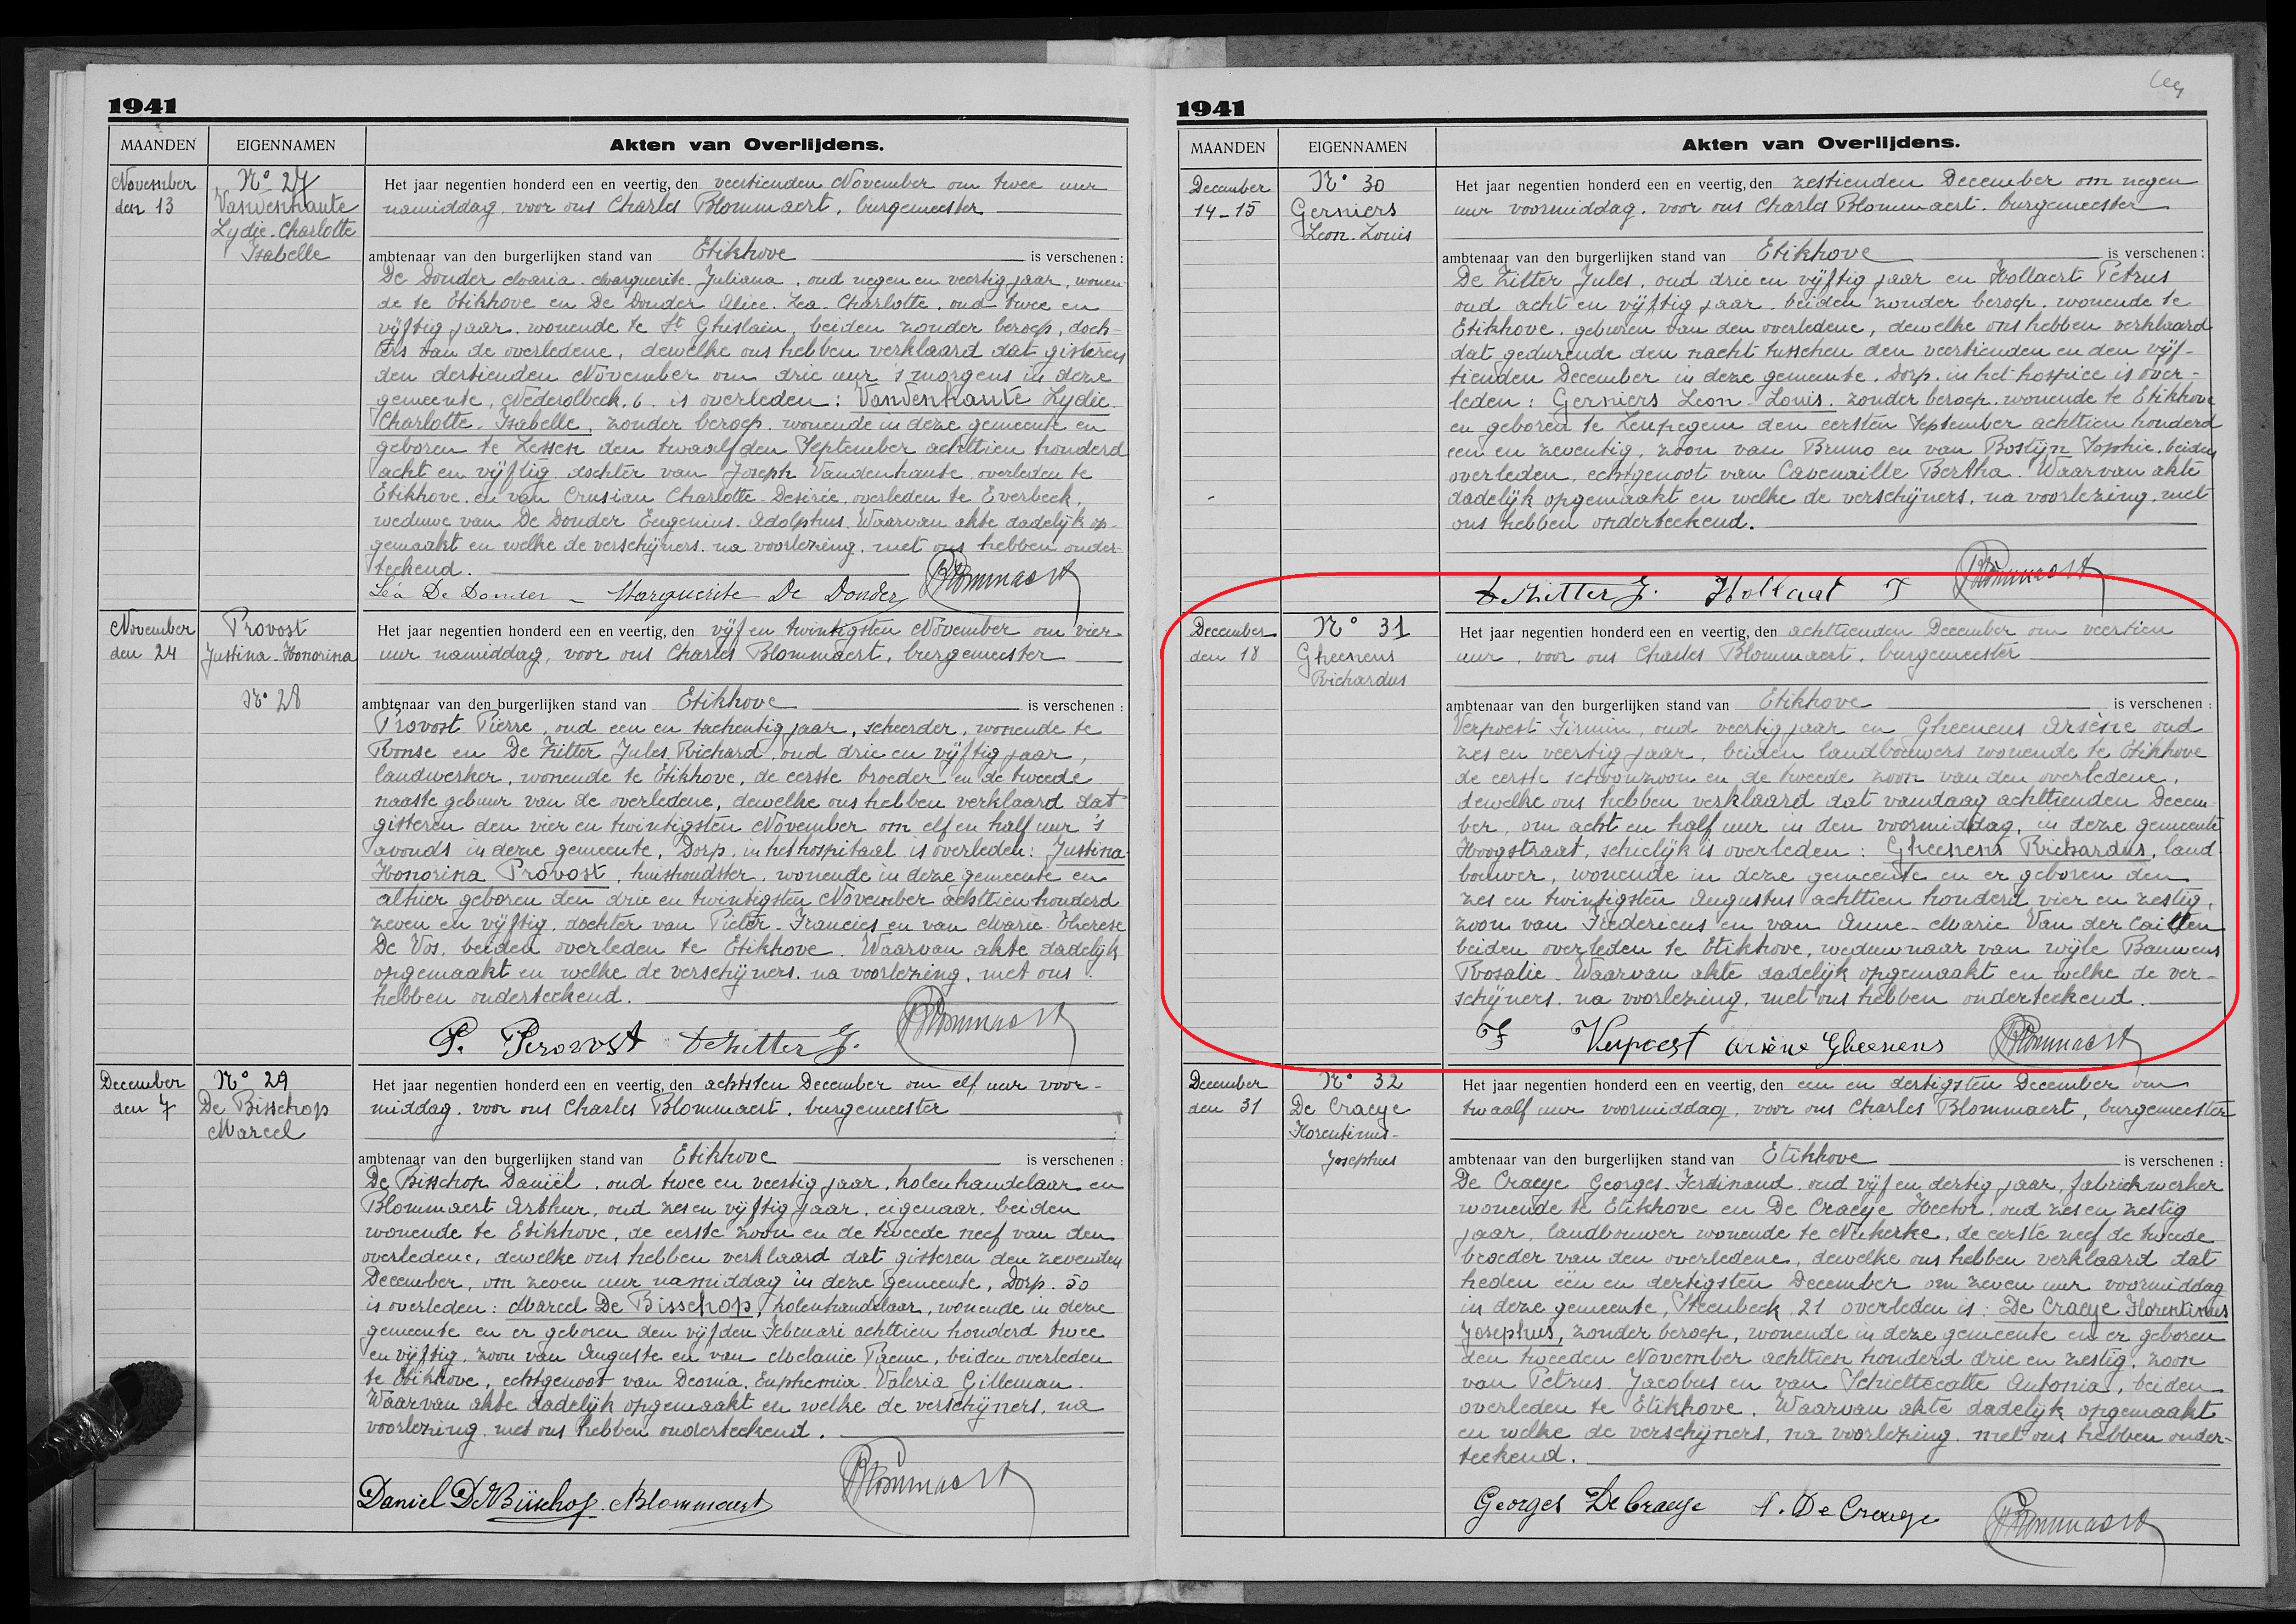 1941
MAANDEN
EIGENNAMEN
Akten van Overlijdens.
November
den 13
N° 27
Vandenhaute
Lydie-Charlotte
Isabelle
Het jaar negentien honderd een en veertig, den veertienden November om twee uur
namiddag, voor ons Charles Blommaert, burgemeester
ambtenaar van den burgerlijken stand van Etikhove is verschenen :
De Donder Maria-Marguerite-Juliana, oud negen en veertig jaar, wonen-
de te Etikhove en De Donder Alice-Lea-Charlotte, oud twee en
vijftig jaar, wonende te St Ghislain, beiden zonder beroep, doch-
ters van de overledene, dewelke ons hebben verklaard dat gisteren
den dertienden November om drie uur 's morgens in deze
gemeente, Nederolbeek, 6. is overleden: Vandenhaute Lydie-
Charlotte-Isabelle, zonder beroep, wonende in deze gemeente en
geboren te Lessen den twaalfden September achttien honderd
acht en vijftig, dochter van Joseph Vandenhaute overleden te
Etikhove, en van Crusiau Charlotte-Desirée, overleden te Everbeek,
weduwe van De Donder Eugenius-Adolphus. Waarvan akte dadelijk op-
gemaakt en welke de verschijners, na voorlezing, met ons hebben onder-
teekend.
Léa De Donder - Marguerite De Donder Blommaert
November
den 24
Provost
Justina-Honorina
N° 28
Het jaar negentien honderd een en veertig, den vijf en twintigsten November om vier
uur namiddag, voor ons Charles Blommaert, burgemeester
ambtenaar van den burgerlijken stand van Etikhove is verschenen :
Provost Pierre, oud een en tachentig jaar, scheerder, wonende te
Ronse en De Zitter Jules, Richard, oud drie en vijftig jaar,
landwerker, wonende te Etikhove, de eerste broeder en de tweede
naaste gebuur van de overledene, dewelke ons hebben verklaard dat
gisteren den vier en twintigsten November om elf en half uur 's
avonds in deze gemeente, Dorp, in het hospitaal is overleden: Justina-
Honorina Provost, huishoudster, wonende in deze gemeente en
alhier geboren den drie en twintigsten November achttien honderd
zeven en vijftig, dochter van Pieter-Francies en van Marie-Therese
De Vos, beiden overleden te Etikhove. Waarvan akte dadelijk
opgemaakt en welke de verschijners, na voorlezing, met ons
hebben onderteekend.
P. Provost De Zitter J. Blommaert
December
den 7
N° 29
De Bisschop
Marcel
Het jaar negentien honderd een en veertig, den achtsten December om elf uur voor-
middag, voor ons Charles Blommaert, burgemeester
ambtenaar van den burgerlijken stand van Etikhove is verschenen :
De Bisschop Daniël, oud twee en veertig jaar, kolenhandelaar en
Blommaert Arthur, oud zes en vijftig jaar, eigenaar, beiden
wonende te Etikhove, de eerste zoon en de tweede neef van den
overledene, dewelke ons hebben verklaard dat gisteren den zevenden
December, om zeven uur namiddag in deze gemeente, Dorp. 50
is overleden: Marcel De Bisschop, kolenhandelaar, wonende in deze
gemeente en er geboren den vijfden Februari achttien honderd twee
en vijftig, zoon van Auguste en van Melanie Paeme, beiden overleden
te Etikhove, echtgenoot van Deonia, Euphemia, Valeria Gilleman.
Waarvan akte dadelijk opgemaakt en welke de verschijners, na
voorlezing, met ons hebben onderteekend.
Daniel De Bisschop. Blommaert Blommaert
1941
MAANDEN
EIGENNAMEN
Akten van Overlijdens.
December
14-15
N° 30
Gerniers
Leon-Louis
Het jaar negentien honderd een en veertig, den zestienden December om negen
uur voormiddag, voor ons Charles Blommaert, burgemeester
ambtenaar van den burgerlijken stand van Etikhove is verschenen :
De Zitter Jules, oud drie en vijftig jaar en Hollaert Petrus
oud acht en vijftig jaar, beiden zonder beroep, wonende te
Etikhove, geburen van den overledene, dewelke ons hebben verklaard
dat gedurende den nacht tusschen den veertienden en den vijf-
tienden December in deze gemeente, Dorp, in het hospice is over-
leden: Gerniers Leon-Louis, zonder beroep, wonende te Etikhove
en geboren te Leupegem den eersten September achttien honderd
een en zeventig, zoon van Bruno en van Bostijn Sophie, beiden
overleden, echtgenoot van Cavenaille Bertha. Waarvan akte
dadelijk opgemaakt en welke de verschijners, na voorlezing, met
ons hebben onderteekend.
De Zitter J. Hollaert P Blommaert
December
den 18
N° 31
Gheenens
Richardus
Het jaar negentien honderd een en veertig, den achttienden December om veertien
uur, voor ons Charles Blommaert, burgemeester
ambtenaar van den burgerlijken stand van Etikhove is verschenen :
Verpoest Firmin, oud veertig jaar en Gheenens Arsène oud
zes en veertig jaar, beiden landbouwers wonende te Etikhove
de eerste schoonzoon en de tweede zoon van den overledene,
dewelke ons hebben verklaard dat vandaag achttienden Decem-
ber, om acht en half uur in den voormiddag, in deze gemeente
Hoogstraat, schielijk is overleden: Gheenens Richardus, land-
bouwer, wonende in deze gemeente en er geboren den
zes en twintigsten Augustus achttien honderd vier en zestig,
zoon van Fredericus en van Anne-Marie Van der Caillen
beiden overleden te Etikhove, weduwnaar van wijle Bauwens
Rosalie. Waarvan akte dadelijk opgemaakt en welke de ver-
schijners, na voorlezing, met ons hebben onderteekend.
F Verpoest Arsène Gheenens Blommaert
December
den 31
N° 32
De Craeye
Florentinus-
Josephus
Het jaar negentien honderd een en veertig, den een en dertigsten December om
twaalf uur voormiddag, voor ons Charles Blommaert, burgemeester
ambtenaar van den burgerlijken stand van Etikhove is verschenen :
De Craeye Georges-Ferdinand, oud vijf en dertig jaar, fabriekwerker
wonende te Etikhove en De Craeye Hector, oud zes en zestig
jaar, landbouwer wonende te Nukerke, de eerste neef de tweede
broeder van den overledene, dewelke ons hebben verklaard dat
heden één en dertigsten December om zeven uur voormiddag
in deze gemeente, Steenbeek, 21 overleden is: De Craeye Florentinus
Josephus, zonder beroep, wonende in deze gemeente en er geboren
den tweeden November achttien honderd drie en zestig, zoon
van Petrus-Jacobus en van Schiettecatte Antonia, beiden
overleden te Etikhove. Waarvan akte dadelijk opgemaakt
en welke de verschijners, na voorlezing, met ons hebben onder-
teekend.
Georges De Craeye H. De Craeye Blommaert